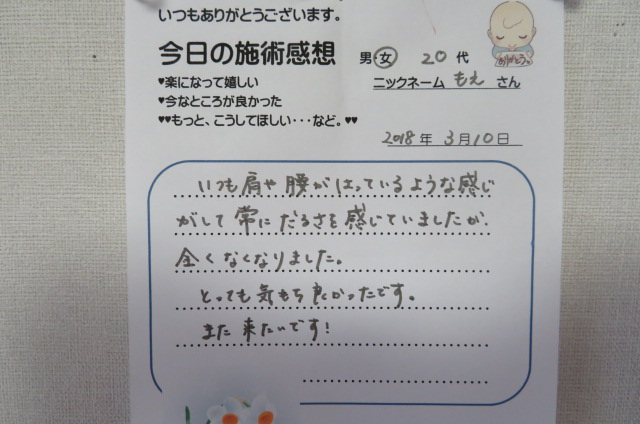 いつもありがとうございます。
今日の施術感想
男・女 20代
♥楽になって嬉しい
ニックネーム もえ さん
♥今なところが良かった
♥♥もっと、こうしてほしい・・・など。♥♥
2018年 3月10日
いつも肩や腰がはっているような感じ
がして常にだるさを感じていましたが、
全くなくなりました。
とっても気もち良かったです。
また来たいです!
ありがとう